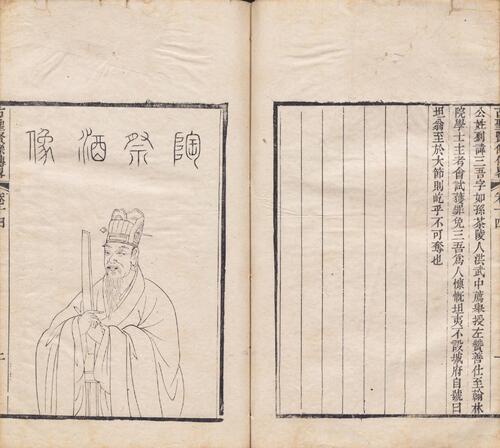 公姓劉諱三吾字如孫茶陵人洪武中薦舉授左贊善仕至翰林
院學士主考會試獲罪免三吾爲人慷慨坦夷不設城府自號曰
坦翁至於大節則屹乎不可奪也
陶祭酒像